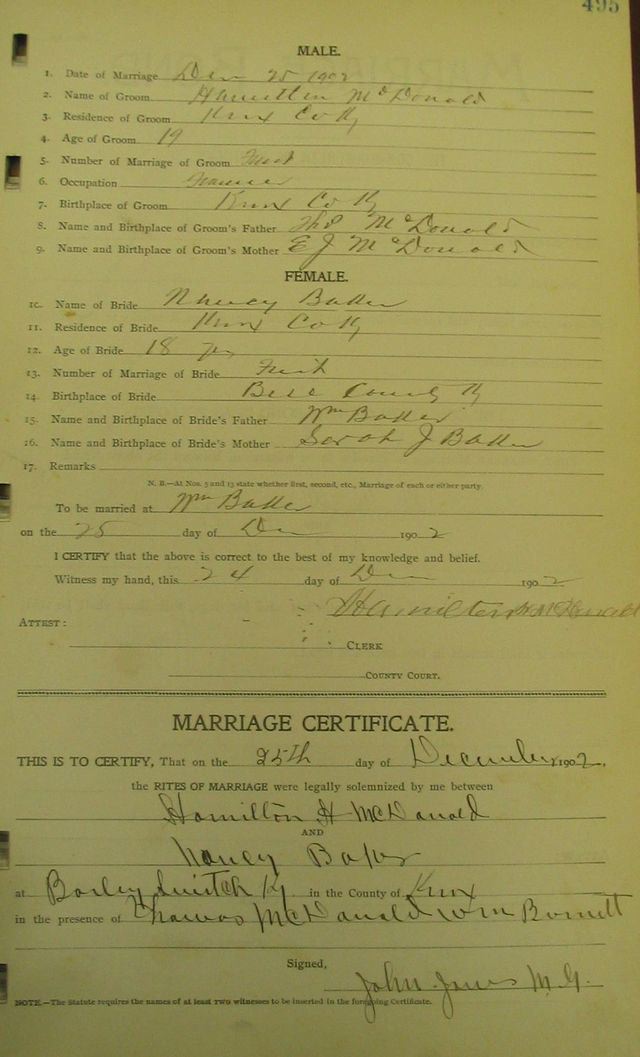 495
MALE.
1. Date of Marriage Dec 25 1902
2. Name of Groom Hamilton McDonald
3. Residence of Groom Knox Co Ky
4. Age of Groom 19
5. Number of Marriage of Groom First
6. Occupation Farmer
7. Birthplace of Groom Knox Co Ky
8. Name and Birthplace of Groom's Father Tho McDonald
9. Name and Birthplace of Groom's Mother E J McDonald
FEMALE.
10. Name of Bride Nancy Baker
11. Residence of Bride Knox Co Ky
12. Age of Bride 18 yrs
13. Number of Marriage of Bride First
14. Birthplace of Bride Bell County Ky
15. Name and Birthplace of Bride's Father Wm Baker
16. Name and Birthplace of Bride's Mother Sarah J Baker
17. Remarks
N. B.—At Nos. 5 and 13 state whether first, second, etc., Marriage of each or either party.
To be married at Wm Baker
on the 25 day of Dec 1902
I CERTIFY that the above is correct to the best of my knowledge and belief.
Witness my hand, this 24 day of Dec 1902
Hamilton H McDonald
ATTEST:
CLERK
COUNTY COURT.
MARRIAGE CERTIFICATE.
THIS IS TO CERTIFY, That on the 25th day of December 1902,
the RITES OF MARRIAGE were legally solemnized by me between
Hamilton H McDonald
AND
Nancy Baker
at Bailey Switch Ky in the County of Knox
in the presence of Thomas McDonald Wm Burnett
Signed,
John Jones M.G.
NOTE.—The Statute requires the names of at least two witnesses to be inserted in the foregoing Certificate.